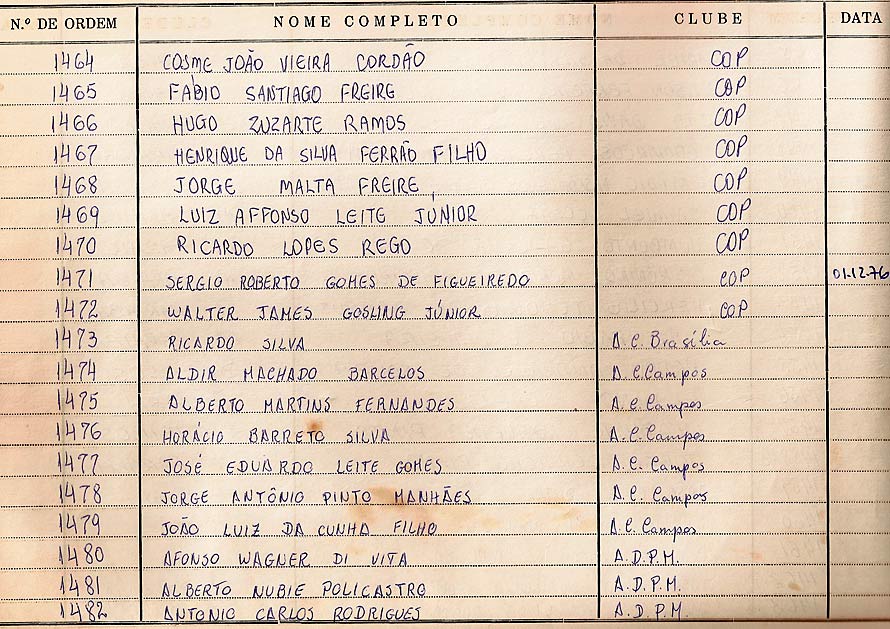 N.º DE ORDEM NOME COMPLETO CLUBE DATA
1464 COSME JOÃO VIEIRA CORDÃO COP
1465 FABIO SANTIAGO FREIRE COP
1466 HUGO ZUZARTE RAMOS COP
1467 HENRIQUE DA SILVA FERRÃO FILHO COP
1468 JORGE MALTA FREIRE COP
1469 LUIZ AFFONSO LEITE JÚNIOR COP
1470 RICARDO LOPES REGO COP
1471 SERGIO ROBERTO GOMES DE FIGUEIREDO COP 01.12.76
1472 WALTER JAMES GOSLING JÚNIOR COP
1473 RICARDO SILVA A.C. Brasília
1474 ALDIR MACHADO BARCELOS A.C. Campos
1475 ALBERTO MARTINS FERNANDES A.C. Campos
1476 HORÁCIO BARRETO SILVA A.C. Campos
1477 JOSÉ EDUARDO LEITE GOMES A.C. Campos
1478 JORGE ANTÔNIO PINTO MANHÃES A.C. Campos
1479 JOÃO LUIZ DA CUNHA FILHO A.C. Campos
1480 AFONSO WAGNER DI VITA A.D.P.M.
1481 ALBERTO NUBIE POLICASTRO A.D.P.M.
1482 ANTONIO CARLOS RODRIGUES A.D.P.M.